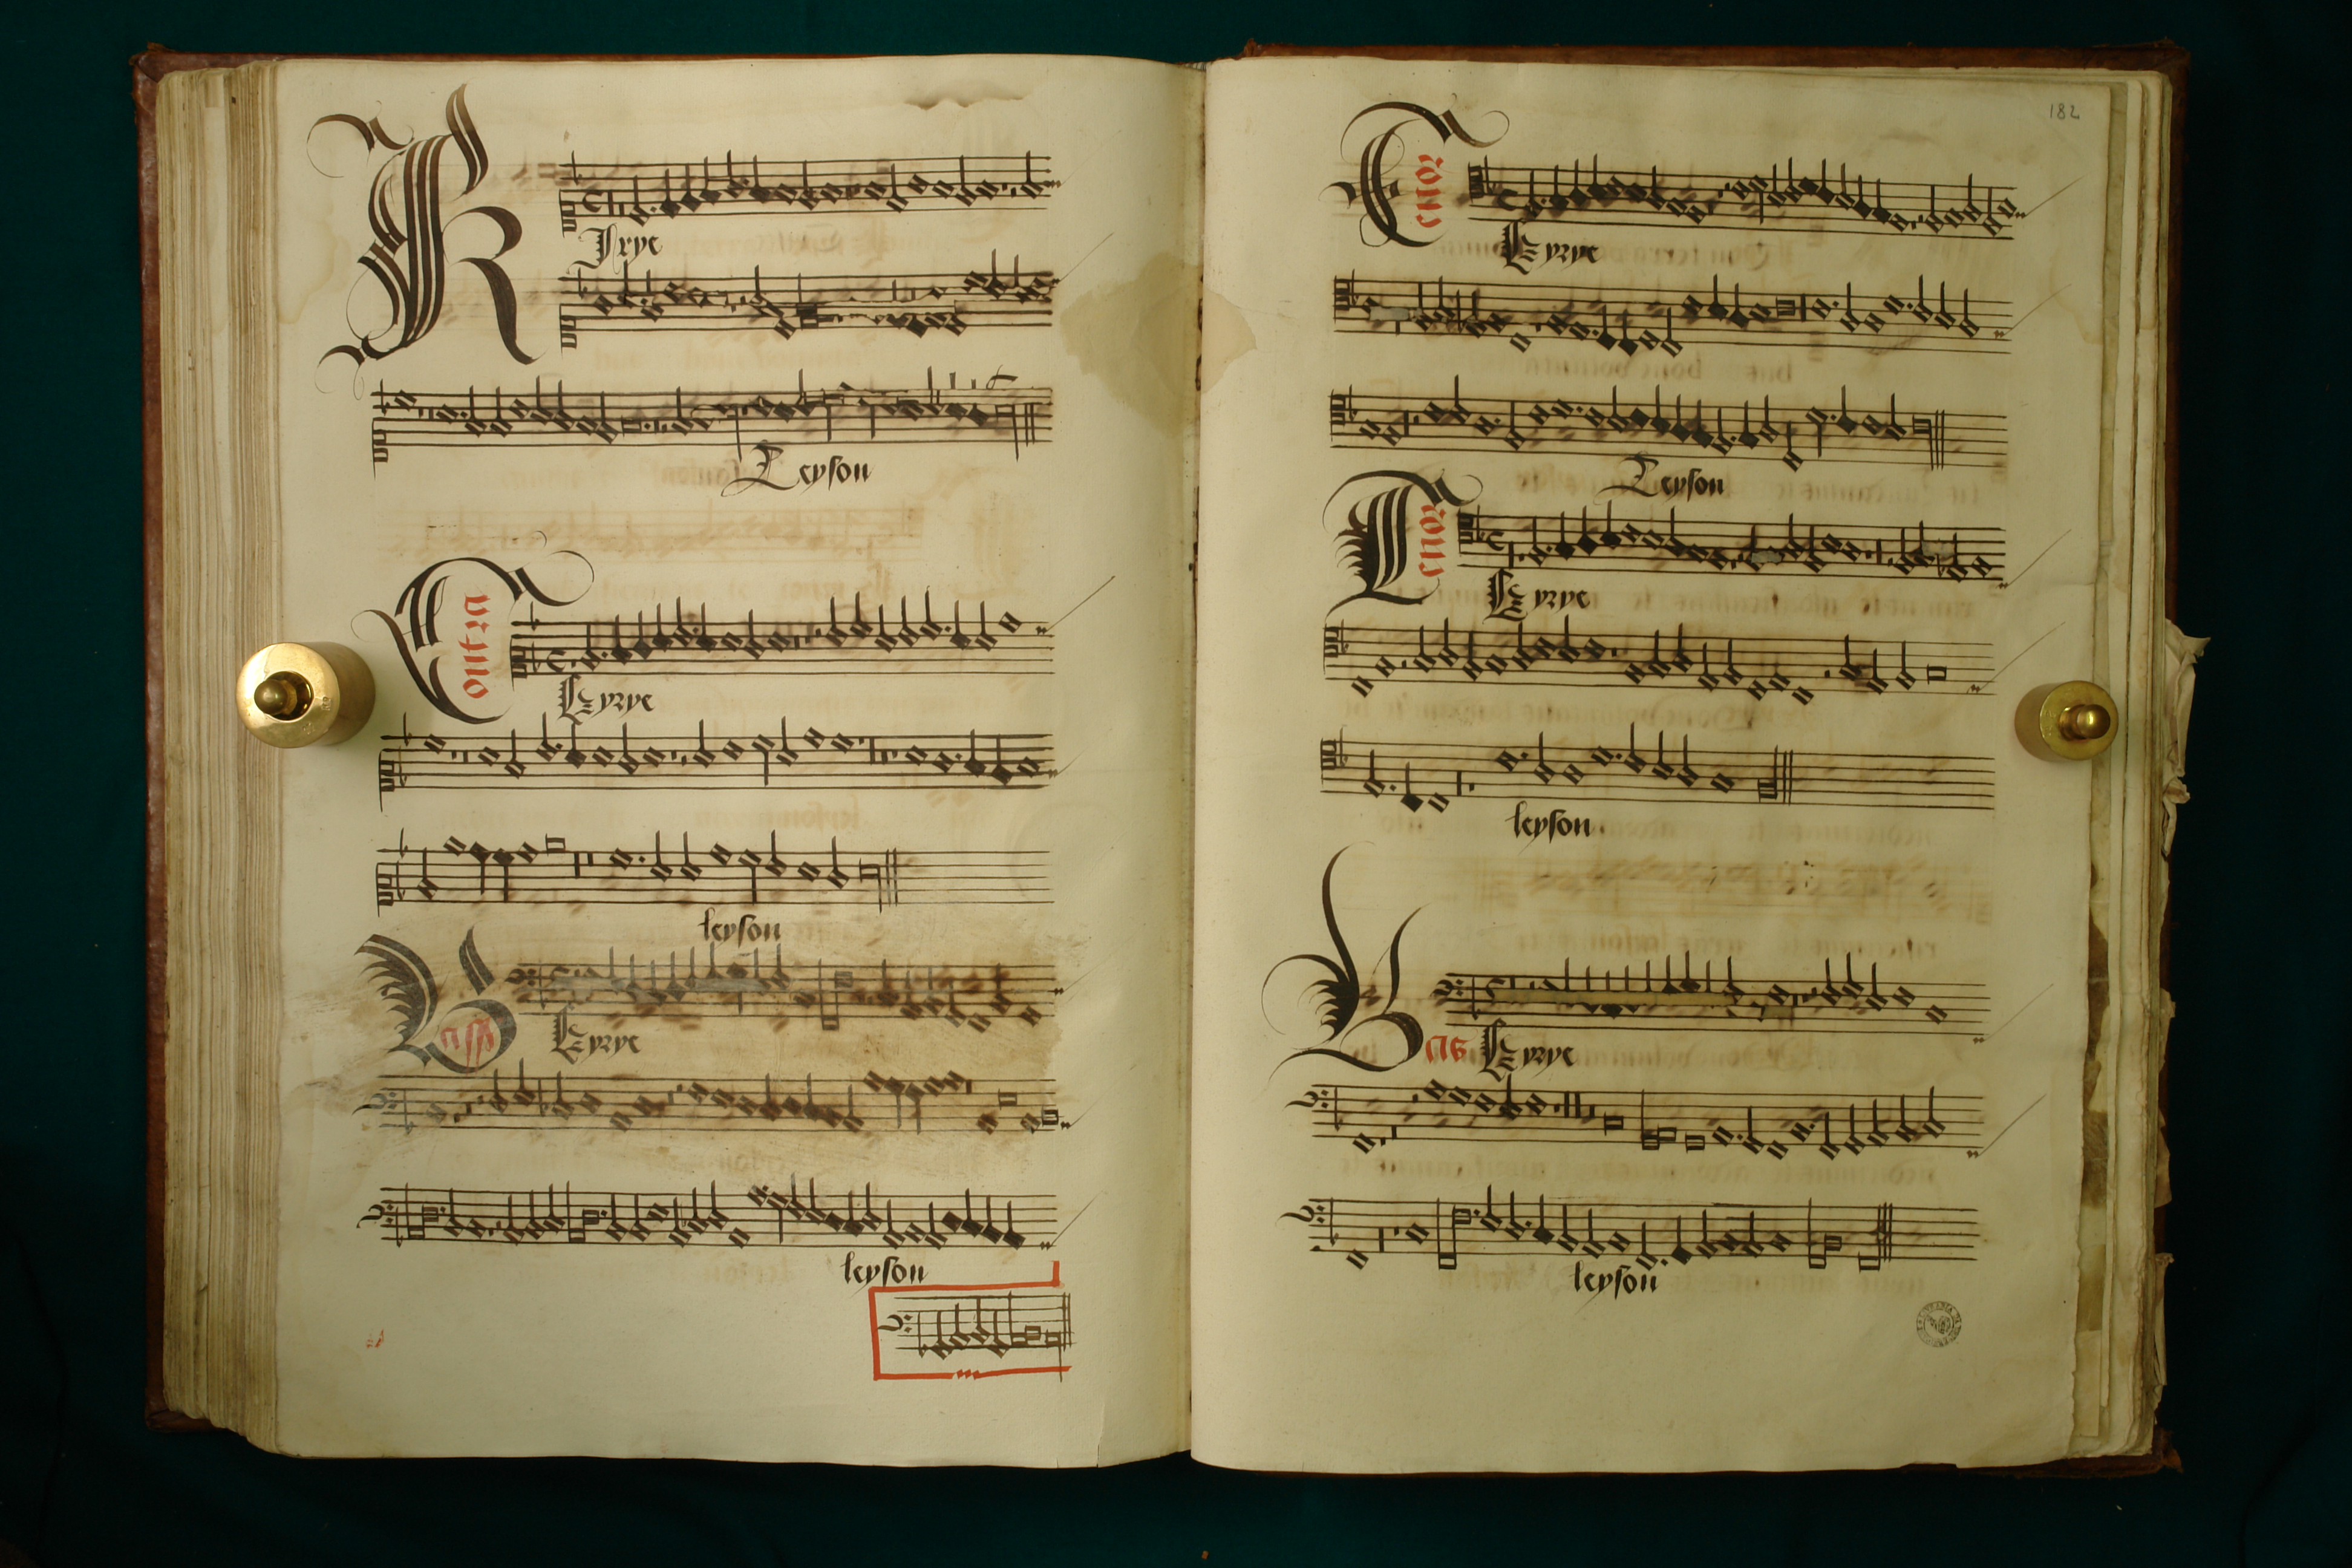 Kyrye
Leyson
Contra
Kyrye
leyson
Bassus
Kyrye
leyson
182
Tenor
Kyrye
Leyson
Tenor
Kyrye
leyson
Bas
Kyrye
leyson